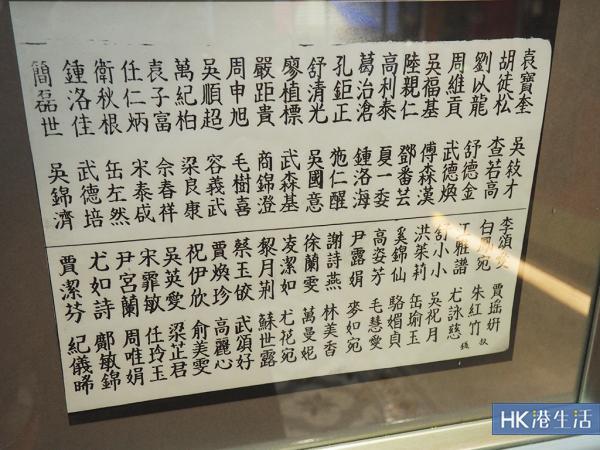 袁寶奎 吳紋才
胡徒松 查若高
劉以龍 舒德金
周維貢 武德煥
吳福基 傅森漢
陸親仁 鄧番芸
高利泰 夏一委
葛治滄 鍾洛海
孔鉅正 施仁醒
舒清光 吳國意
廖植標 武森基
嚴距貴 商錦澄
周申旭 毛樹喜
吳順超 容義武
萬紀柏 梁良康
袁子富 佘春祥
任仁炳 宋泰咸
衛秋根 缶左然
鍾洛佳 武德培
簡磊世 吳錦濟
李頌 賈瑤妍
白鳳宛 朱紅竹
江雅譜 尤詠慈
舒小小 吳祝月
洪茱莉 缶瑜玉
奚錦仙 駱媚貞
高姿芳 毛慧愛
尹露娟 麥如宛
謝詩燕 林美香
徐蘭雯 萬曼妮
凌潔如 尤花宛
黎月荊 蘇世露
蔡玉敏 武頌好
賈煥珍 高麗心
祝伊欣 俞美雯
吳英愛 梁芷君
宋霏敏 任玲玉
尹宮蘭 周唯娟
尤如詩 鄺敏錦
賈潔芬 紀儀晞
HK港生活